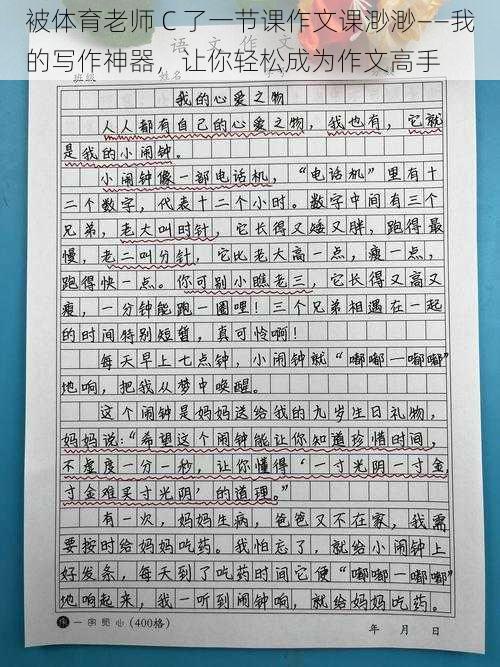 被体育老师C了一节课作文课渺渺——我
的写作神器，让你轻松成为作文高手
语文作文
班级
姓名
我的心爱之物
人人都有自己的心爱之物，我也有，它就
是我的小闹钟。
小闹钟像一部电话机，“电话机”里有十
二个数字，代表十二个小时。数字中间有三个
兄弟，老大叫时针，它长得又矮又胖，跑得最
慢，老二叫分针，它比老大高一点，瘦一点，
跑得快一点。你可别小瞧老三，它长得又高又
瘦，一分钟能跑一圈哩！三个兄弟相遇在一起
的时间特别短暂，真可怜啊！
每天早上七点钟，小闹钟就“嘟嘟一嘟嘟”
地响，把我从梦中唤醒。
这个闹钟是妈妈送给我的九岁生日礼物，
妈妈说：“希望这个闹钟能让你知道珍惜时间，
不虚度一分一秒，让你懂得‘一寸光阴一寸金，
寸金难买寸光阴’的道理。”
有一次，妈妈生病，爸爸又不在家，我需
要按时给妈妈吃药。我怕忘了，就给小闹钟上
好发条，每天到了吃药时间它便“嘟嘟一嘟嘟”
地响起来，我一听到闹钟响，就给妈妈吃药。
作一字见心(400格)
年 月 日